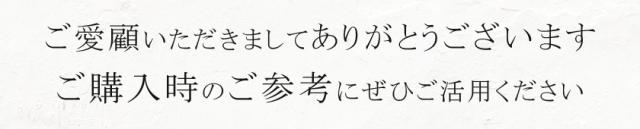 ご愛顧いただきましてありがとうございます
ご購入時のご参考にぜひご活用ください